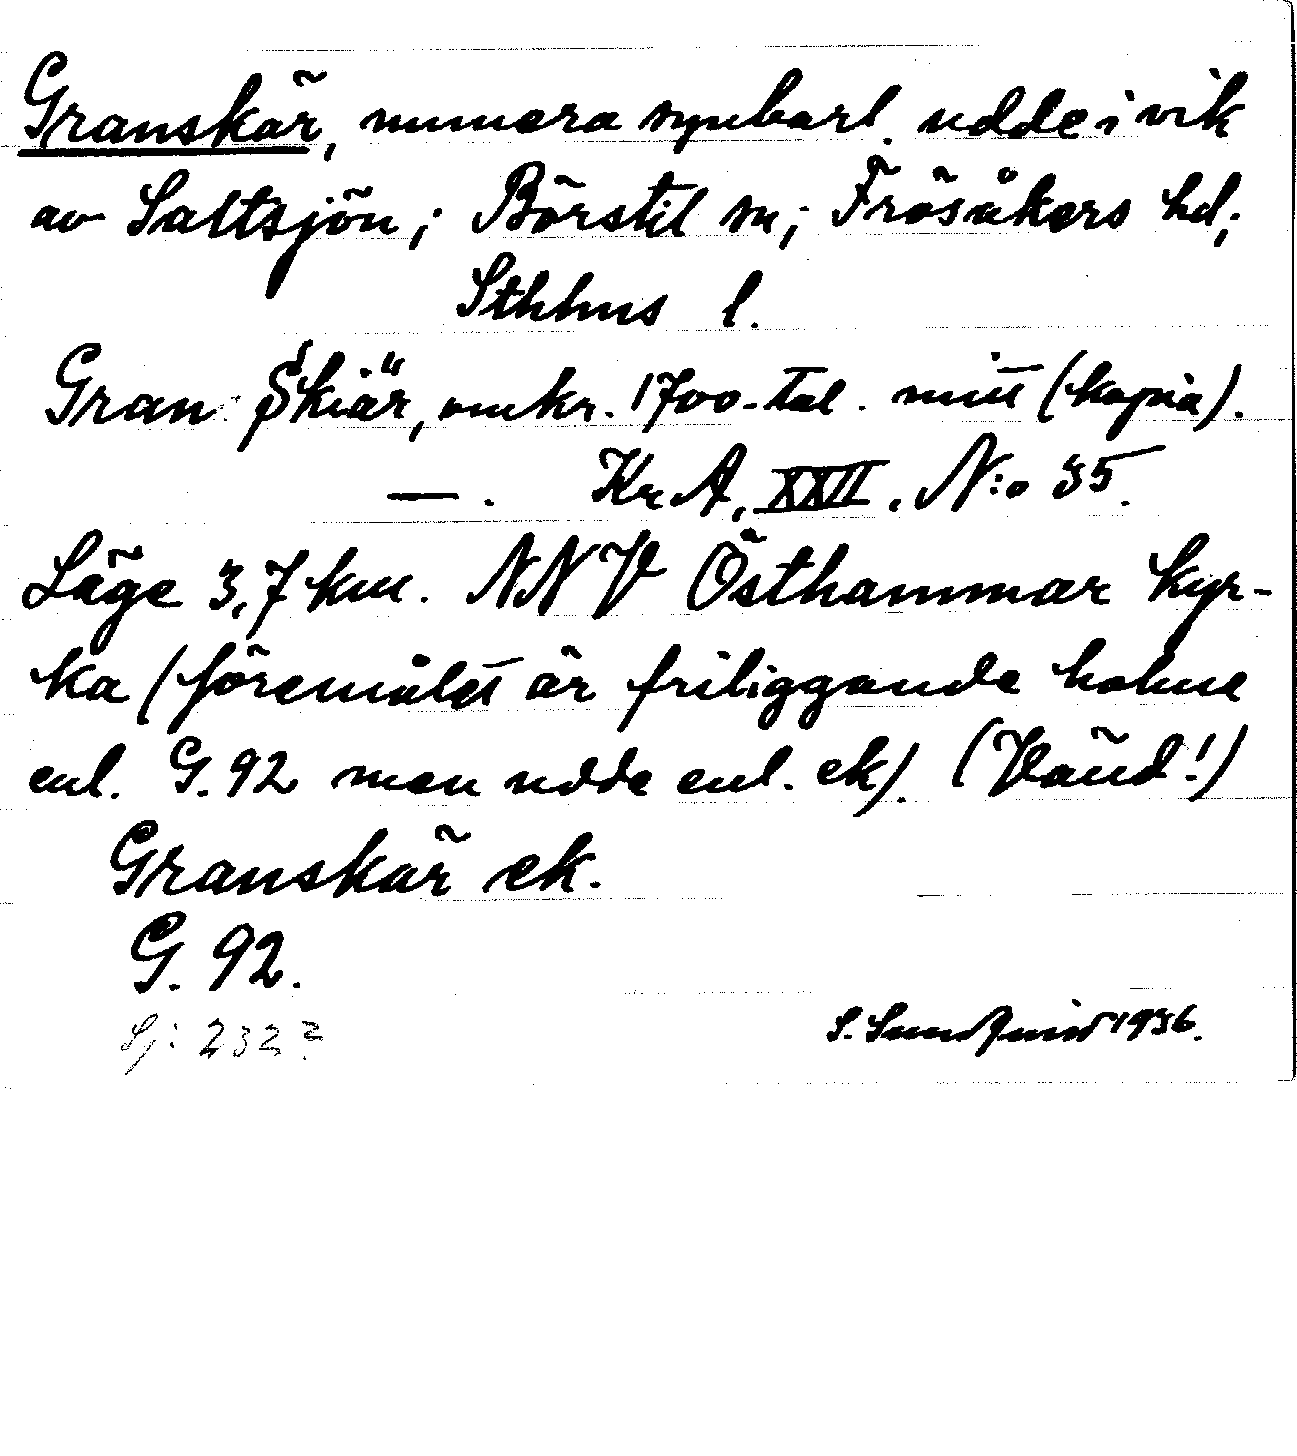 Granskär, numera synbarl. udde i vik
av Saltsjön; Börstil sn; Frösåkers hd;
Sthlms l.
Gran Skiär, omkr. 1700-tal. mitt (kopia).
—. Kr A, XXII. N:o 35.
Läge 3,7 km. NNV Östhammar kyr-
ka (föremålet är friliggande holme
enl. G. 92 men udde enl. ek). (Vänd!)
Granskär ek.
G. 92.
Sj: 232?
S. Sundquist 1936.